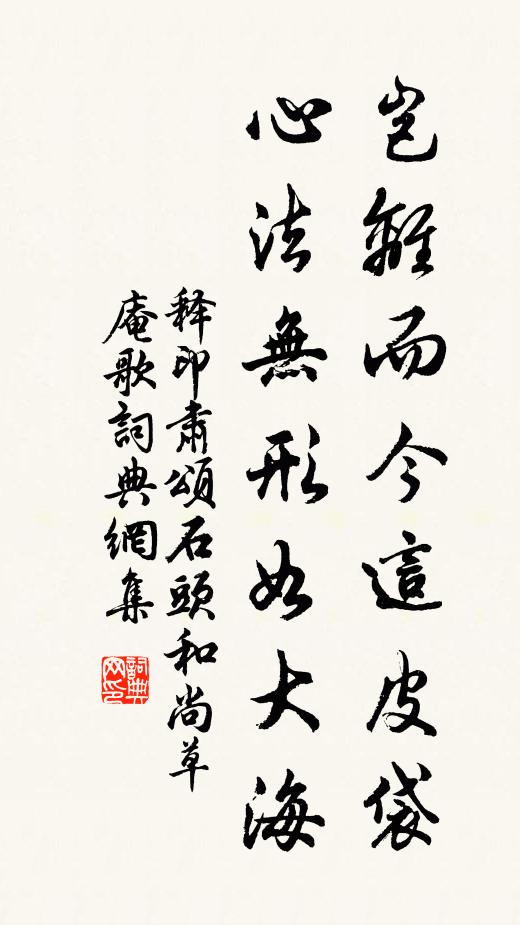 豈離而今這皮袋
心法無形如大海
释印肅頌石頭和尚草
庵歌詞典網集
詞典网印